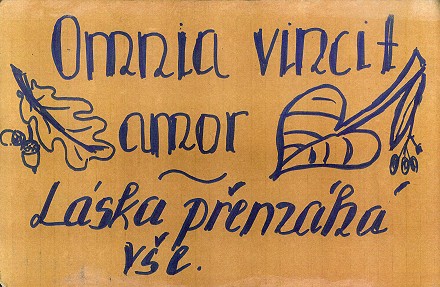 Omnia vincit
amor
Láska přemáhá
vše.